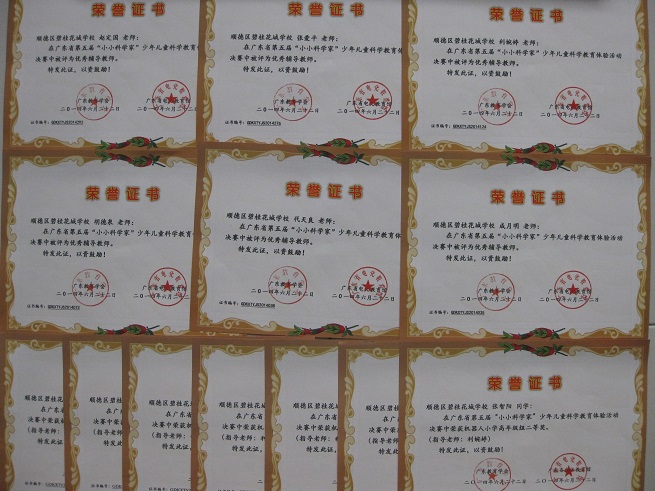 荣誉证书
顺德区碧桂花城学校 赵定国 老师：
在广东省第五届“小小科学家”少年儿童科学教育体
决赛中被评为优秀辅导教师。
特发此证，以资鼓励！
二〇一四年六月二十二日
证书编号：
荣誉证书
顺德区碧桂花城学校 张爱平 老师：
在广东省第五届“小小科学家”少年儿童科学教育体
决赛中被评为优秀辅导教师。
特发此证，以资鼓励！
二〇一四年六月二十二日
证书编号：
荣誉证书
顺德区碧桂花城学校 利婉婷 老师：
在广东省第五届“小小科学家”少年儿童科学教育体验活动
决赛中被评为优秀辅导教师。
特发此证，以资鼓励！
二〇一四年六月二十二日
证书编号：
荣誉证书
顺德区碧桂花城学校 胡德泉 老师：
在广东省第五届“小小科学家”少年儿童科学教育体
决赛中被评为优秀辅导教师。
特发此证，以资鼓励！
二〇一四年六月二十二日
证书编号：
荣誉证书
顺德区碧桂花城学校 代天良 老师：
在广东省第五届“小小科学家”少年儿童科学教育体
决赛中被评为优秀辅导教师。
特发此证，以资鼓励！
二〇一四年六月二十二日
证书编号：
荣誉证书
顺德区碧桂花城学校 成月明 老师：
在广东省第五届“小小科学家”少年儿童科学教育体验活动
决赛中被评为优秀辅导教师。
特发此证，以资鼓励！
二〇一四年六月二十二日
证书编号：
顺德区碧
在
决赛中荣
(指导老师：
特发
证书编号：
顺德区碧桂
在广
决赛中荣获
(指导老师
特发此
顺德区碧桂
在广东
决赛中荣获
(指导老师：
特发此证
顺德区碧桂花
在广东省
决赛中荣获机
(指导老师：利
特发此证，
顺德区碧桂
在广东
决赛中荣获
(指导老师：
特发此证
荣誉证书
顺德区碧桂花城学校 张智阳 同学：
在广东省第五届“小小科学家”少年儿童科学教育体验活动
决赛中荣获机器人小学高年级组二等奖。
(指导老师：利婉婷)
特发此证，以资鼓励！
二〇一四年六月二十二日